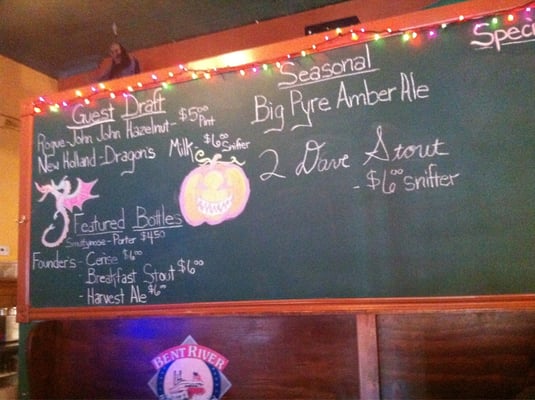 Guest Draft
Rogue-John John Hazelnut- $5.00 Pint
New Holland-Dragon's Milk- $6.00 Snifter
Featured Bottles
Smuttynose-Porter $4.50
Founders - Cerise $6.00
Breakfast Stout $6.00
- Harvest Ale $6.00
Seasonal
Big Pyre Amber Ale
2 Dave Stout
- $6.00 Snifter
BENT RIVER